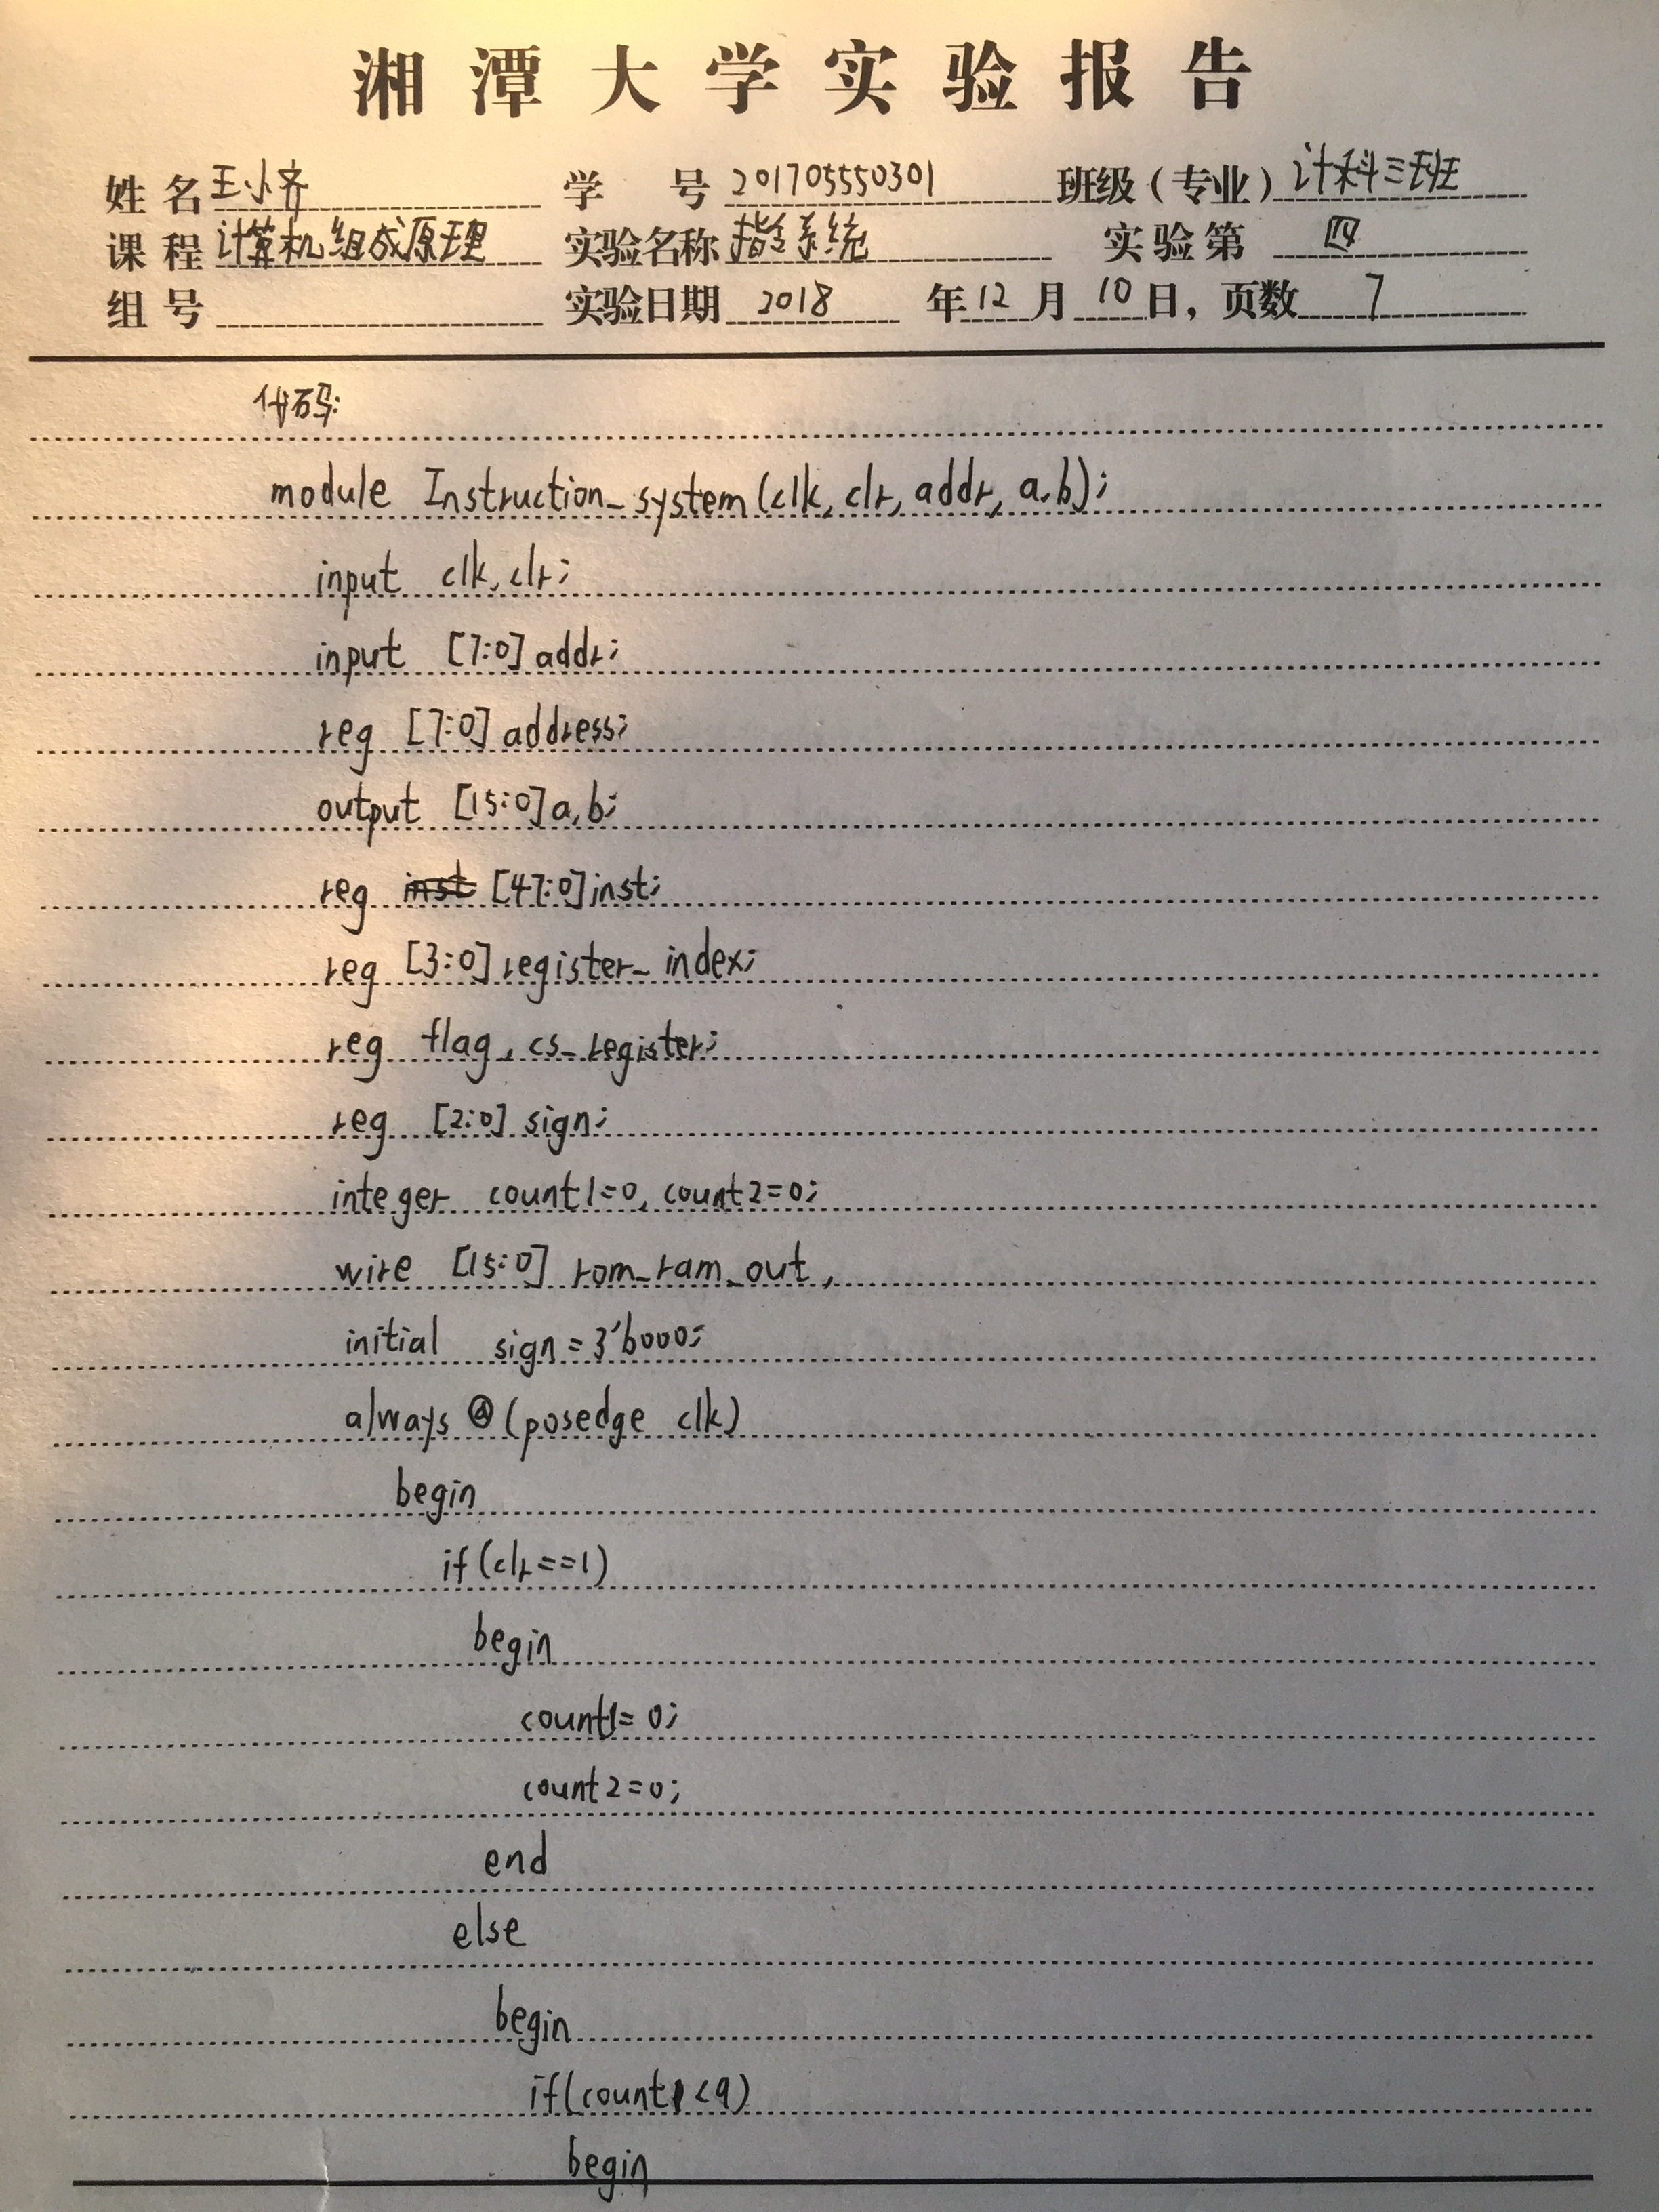 湘潭大学实验报告
姓名 王小齐 学号 201705550301 班级(专业) 计科三班
课程 计算机组成原理 实验名称 指令系统 实验第 四
组号 实验日期 2018 年 12 月 10 日, 页数 7
代码:
module Instruction_system(clk, clr, addr, a,b);
input clk,clr;
input [7:0] addr;
reg [7:0] address;
output [15:0]a,b;
reg [47:0]inst;
reg [3:0] register_index;
reg flag, cs_register;
reg [2:0] sign;
integer count1=0, count2=0;
wire [15:0] rom_ram_out,
initial sign = 3'b000;
always @ (posedge clk)
begin
if(clr==1)
begin
count1= 0;
count2=0;
end
else
begin
if(count1<9)
begin